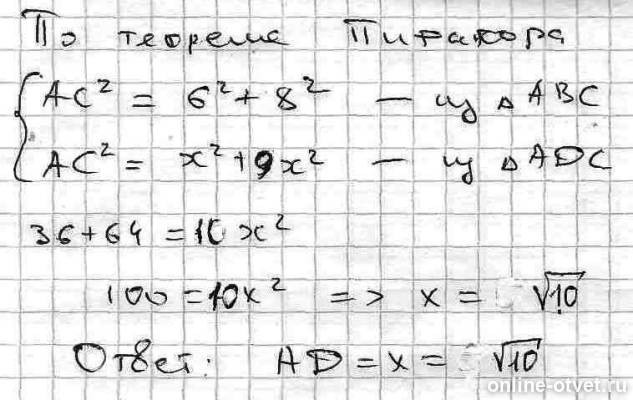 По теореме Пифагора
AC² = 6² + 8² — из △ ABC
AC² = x² + 9x² — из △ ADC
36 + 64 = 10x²
100 = 10x² => x = √10
Ответ: AD = x = √10
online-otvet.ru